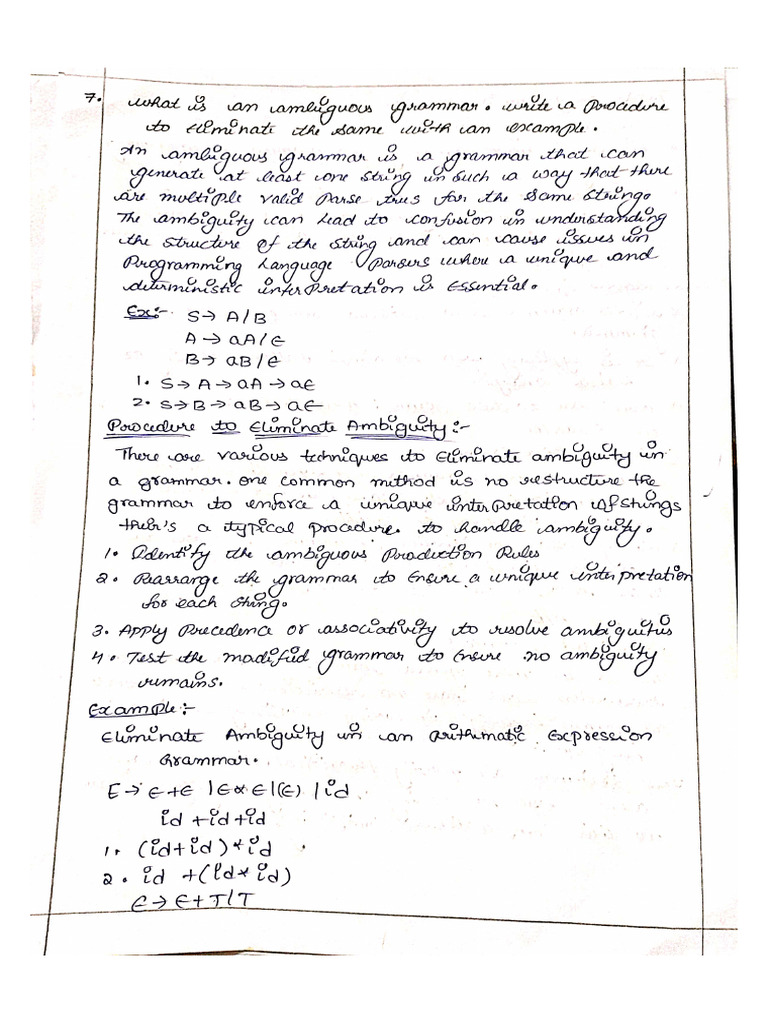 7. What is an ambiguous grammar. write a Procedure
to Eliminate the same with an example.
An ambiguous grammar is a grammar that can
generate at least one string in such a way that there
are multiple valid Parse trees for the same string.
The ambiguity can lead to confusion in understanding
the structure of the string and can cause issues in
Programming Language Parsers where a unique and
deterministic interpretation is Essential.
Ex:-
S→ A/B
A→ aA/ϵ
B→ aB/ϵ
1. S→A→aA→aϵ
2. S→B→aB→aϵ
Procedure to Eliminate Ambiguity:-
There are various techniques to Eliminate ambiguity in
a grammar. one common method is no restructure the
grammar to enforce a unique interpretation of strings
their's a typical procedure. to handle ambiguity.
1. Identify the ambiguous Production Rules
2. Rearrange the grammar to Ensure a unique interpretation
for each string.
3. Apply Precedence or associativity to resolve ambiguities
4. Test the modified grammar to Ensure no ambiguity
remains.
Example:-
Eliminate Ambiguity in an Arithmatic Expression
Grammar.
E→ E+E |E*E|(E) |id
id +id+id
1. (id+id)*id
2. id +(id*id)
E→ E+T/T